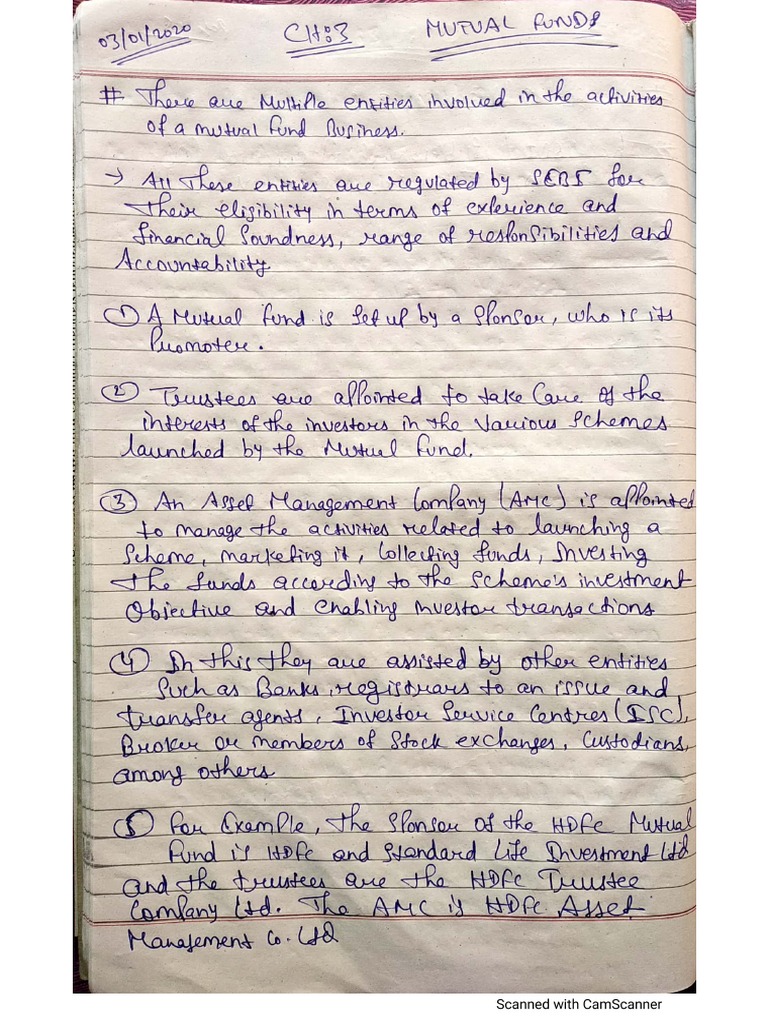 03/01/2020 CH:3 MUTUAL FUNDS
# There are Multiple entities involved in the activities
of a mutual fund Business.
→ All These entities are regulated by SEBI for
their eligibility in terms of experience and
financial Soundness, range of responsibilities and
Accountability
① A Mutual fund is set up by a Sponsor, who is its
Promoter.
② Trustees are appointed to take Care of the
interests of the investors in the Various Schemes
launched by the Mutual Fund.
③ An Asset Management Company (AMC) is appointed
to manage the activities related to launching a
Scheme, marketing it, Collecting funds, Investing
the funds according to the Scheme's investment
Objective and enabling investor transactions
④ In this they are assisted by other entities
Such as Banks, registrars to an issue and
transfer agents, Investor Service Centres (ISC),
Broker or members of Stock exchanges, Custodians,
among others
⑤ For Example, the Sponsor of the HDFC Mutual
Fund is HDFC and Standard Life Investment Ltd
and the trustees are the HDFC Trustee
Company Ltd. The AMC is HDFC Asset
Management Co. Ltd
Scanned with CamScanner